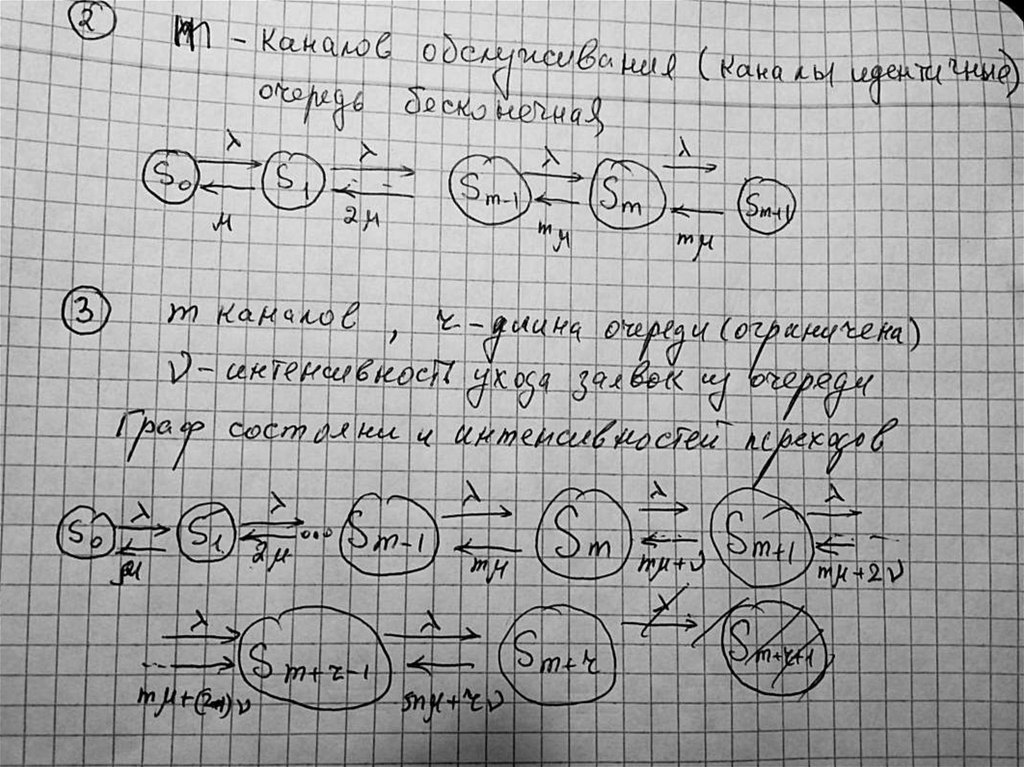 ② m - каналов обслуживания (каналы идентичные)
очередь бесконечная
S₀ λ μ S₁ λ 2μ S_{m-1} λ mμ S_m λ mμ S_{m+1}
③ m каналов, r - длина очереди (ограничена)
ν - интенсивность ухода заявок из очереди
Граф состояни и интенсивностей переходов
S₀ λ μ S₁ λ 2μ ... S_{m-1} λ mμ S_m λ mμ+ν S_{m+1} λ mμ+2ν
λ S_{m+r-1} λ mμ+rν S_{m+r} λ S_{m+r+1}